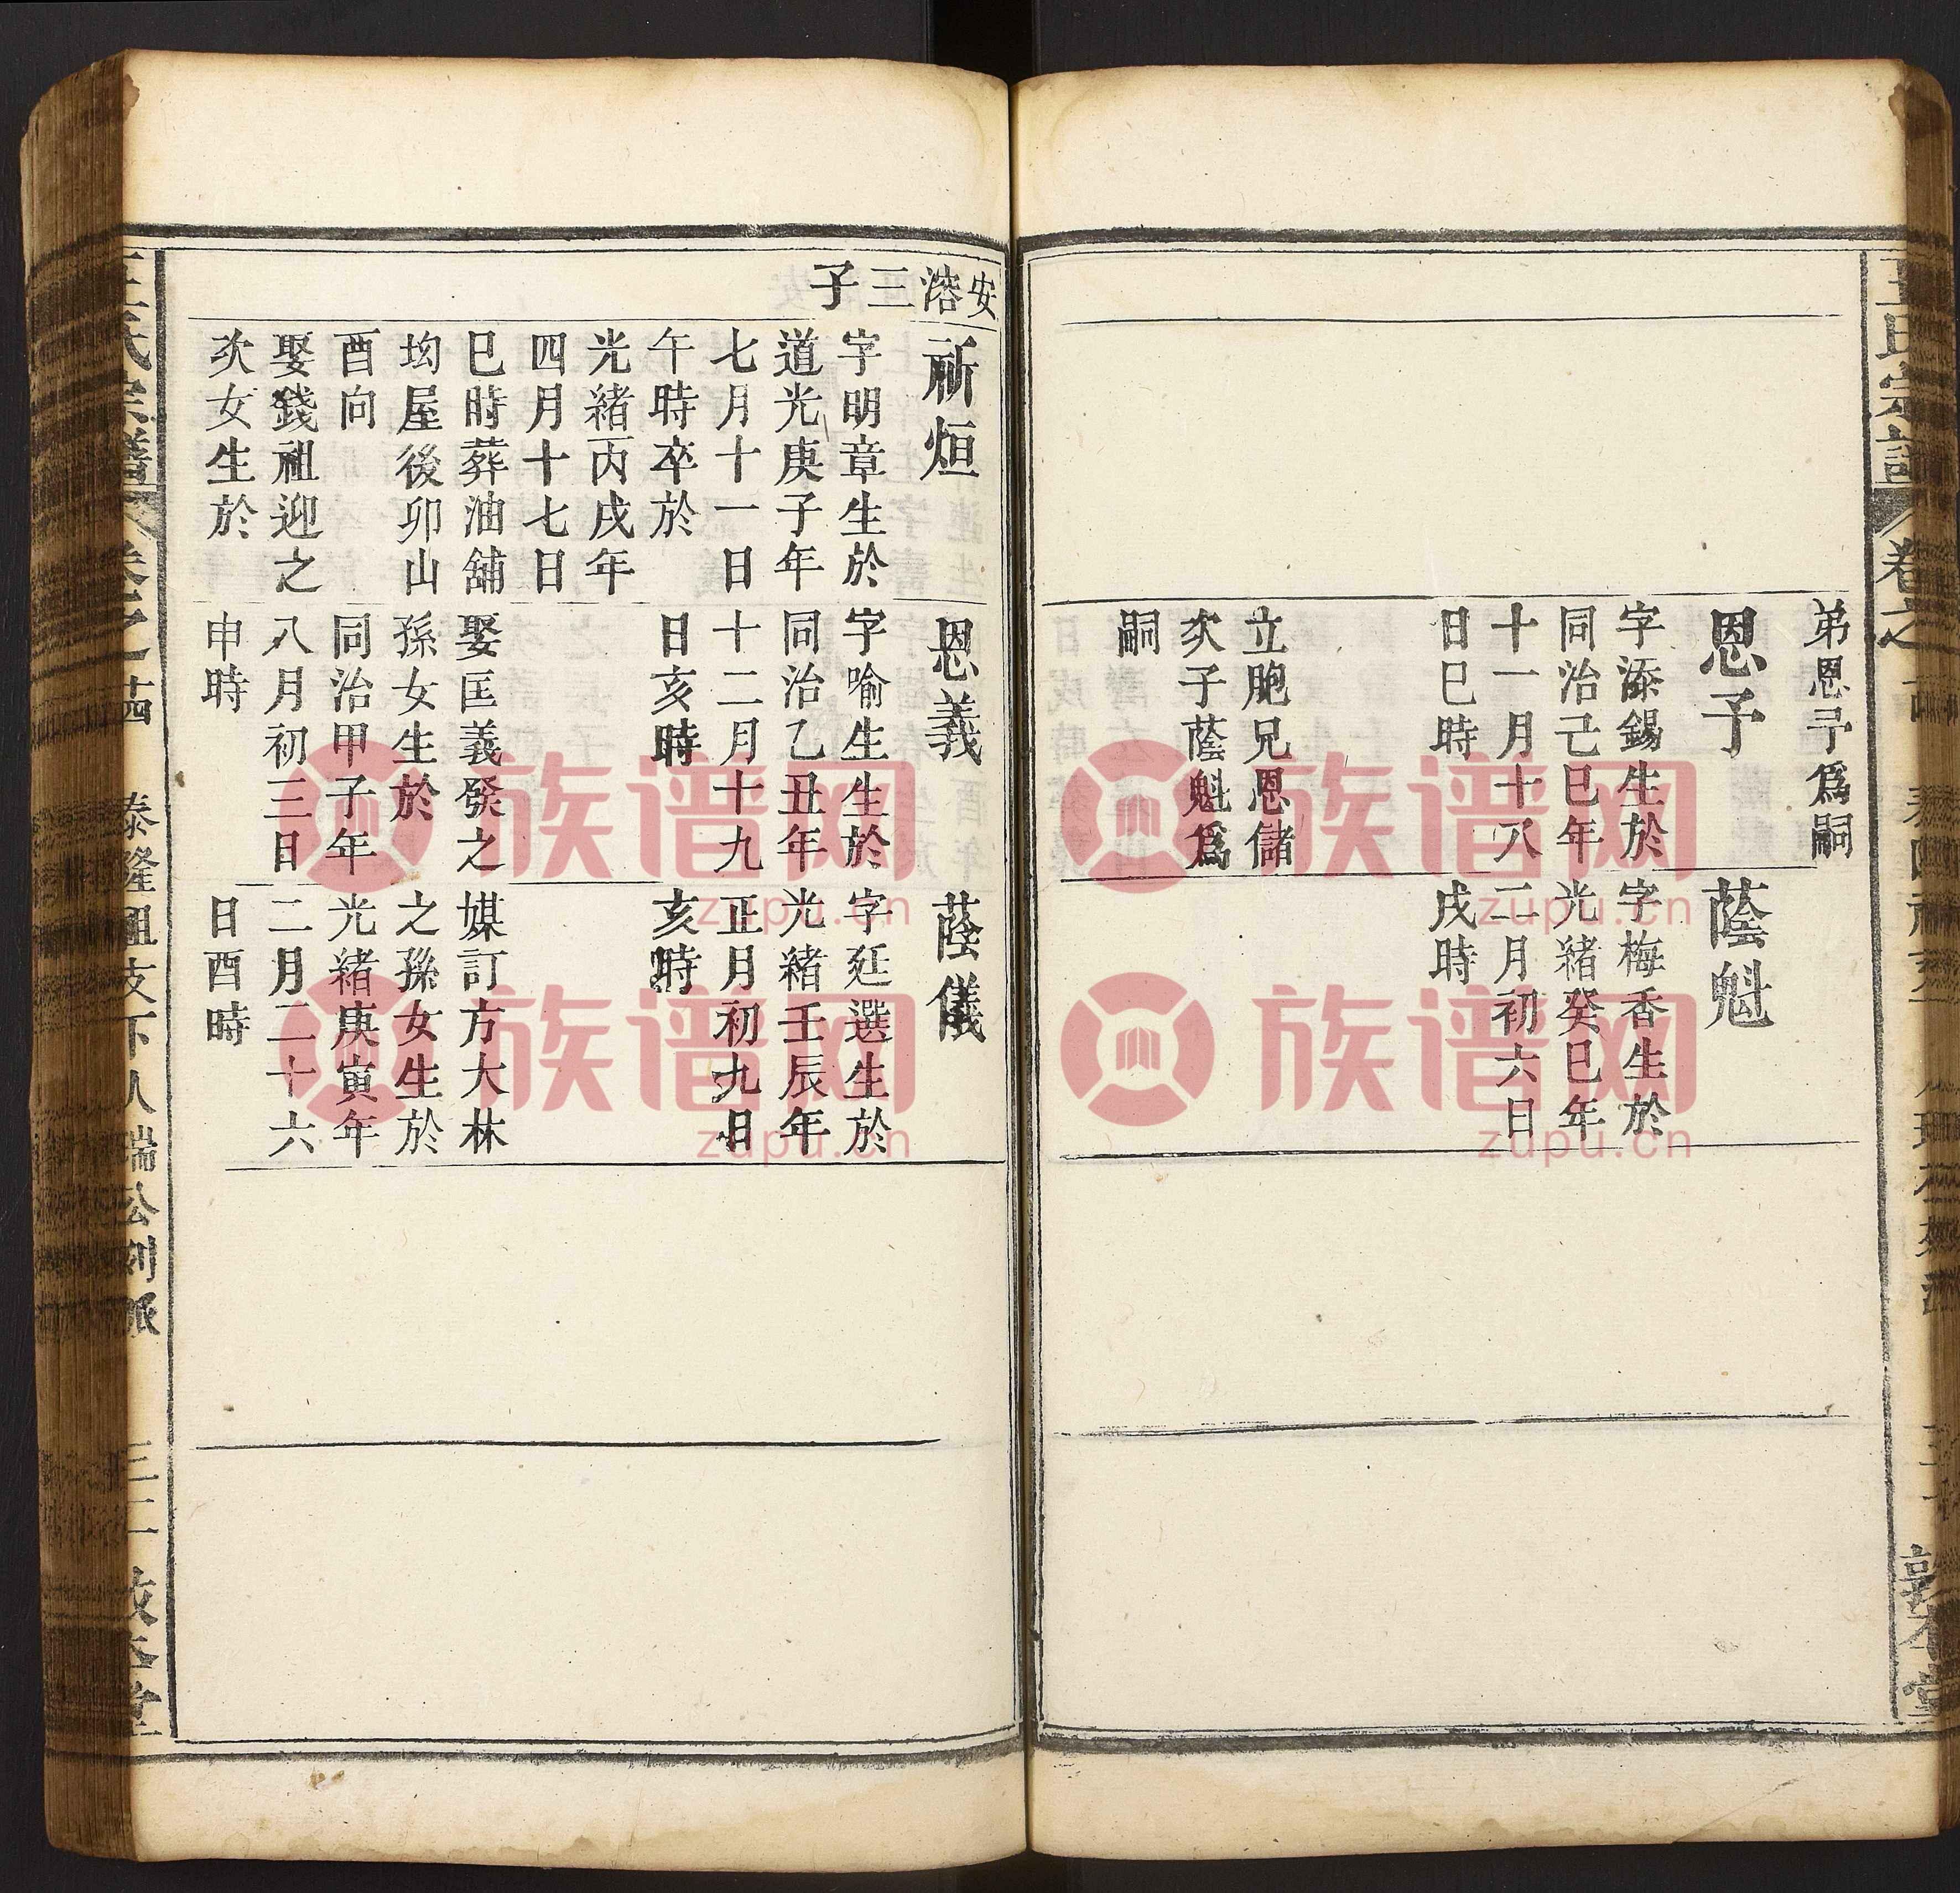 弟恩予爲嗣
恩予
字添錫生於
同治己巳年
十一月十八
日巳時
立胞兄恩儲
次子蔭魁爲
嗣
蔭魁
字梅香生於
光緒癸巳年
二月初六日
戌時
敦本堂
安溶三子
祈烜
字明章生於
道光庚子年
七月十一日
午時卒於
光緒丙戌年
四月十七日
巳時葬油舖
㘬屋後卯山
酉向
娶錢祖迎之
次女生於
恩義
字喻生生於
同治乙丑年
十二月十九
日亥時
娶匡義發之
孫女生於
同治甲子年
八月初三日
申時
蔭儀
字延選生於
光緒壬辰年
正月初九日
亥時
媒訂方大林
之孫女生於
光緒庚寅年
二月二十六
日酉時
王氏宗譜 卷之十四 泰隆祖支下人瑞公剑派 三二 敦本堂
族谱网
zupu.cn
族谱网
zupu.cn
族谱网
zupu.cn
族谱网
zupu.cn